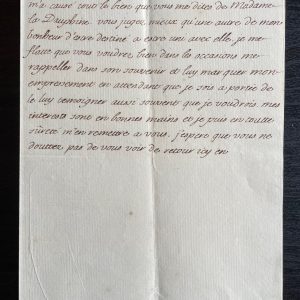 m'a causé tout le bien que vous me dites de Madame
la Dauphine. vous jugez mieux qu'une autre de mon
bonheur d'estre destiné a estre uni avec elle, je me
flatte que vous voudrez bien dans les occasions me
rappeller dans son souvenir et luy marquer mon
empressement en attendant que je sois a portée de
le luy temoigner aussi souvent que je voudrois. mes
interests sont en bonnes mains et je puis en toutte
sûreté m'en remettre a vous. j'espere que vous ne
douttez pas de vous voir de retour icy en